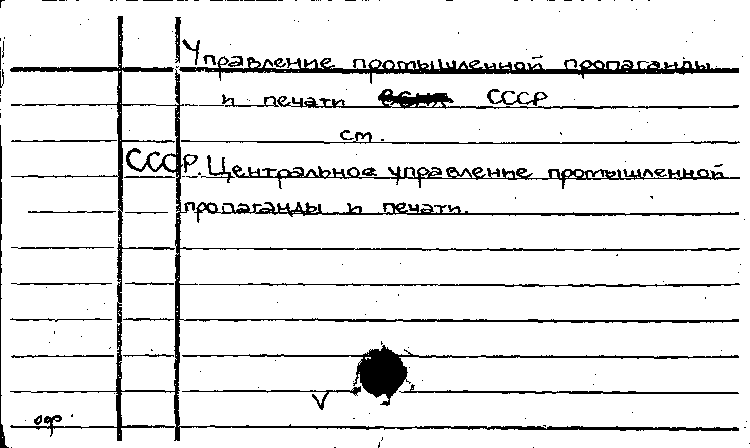 Управление промышленной пропаганды
и печати СССР
см.
СССР. Центральное управление промышленной
пропаганды и печати.
V